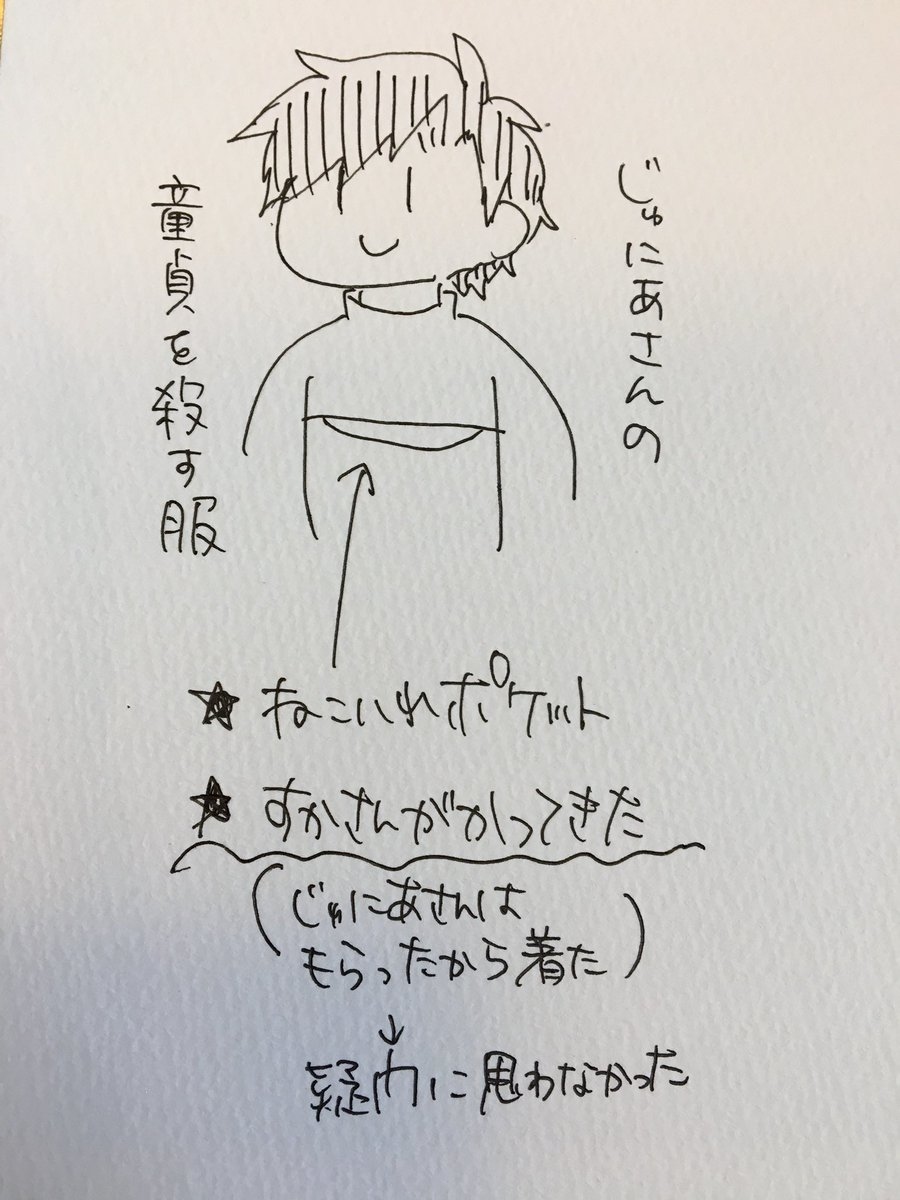 じゅにあさんの
童貞を殺す服
★ ねこいれポケット
★ すかさんがかってきた
(じゅにあさんは
もらったから着た)
↓
疑問に思わなかった